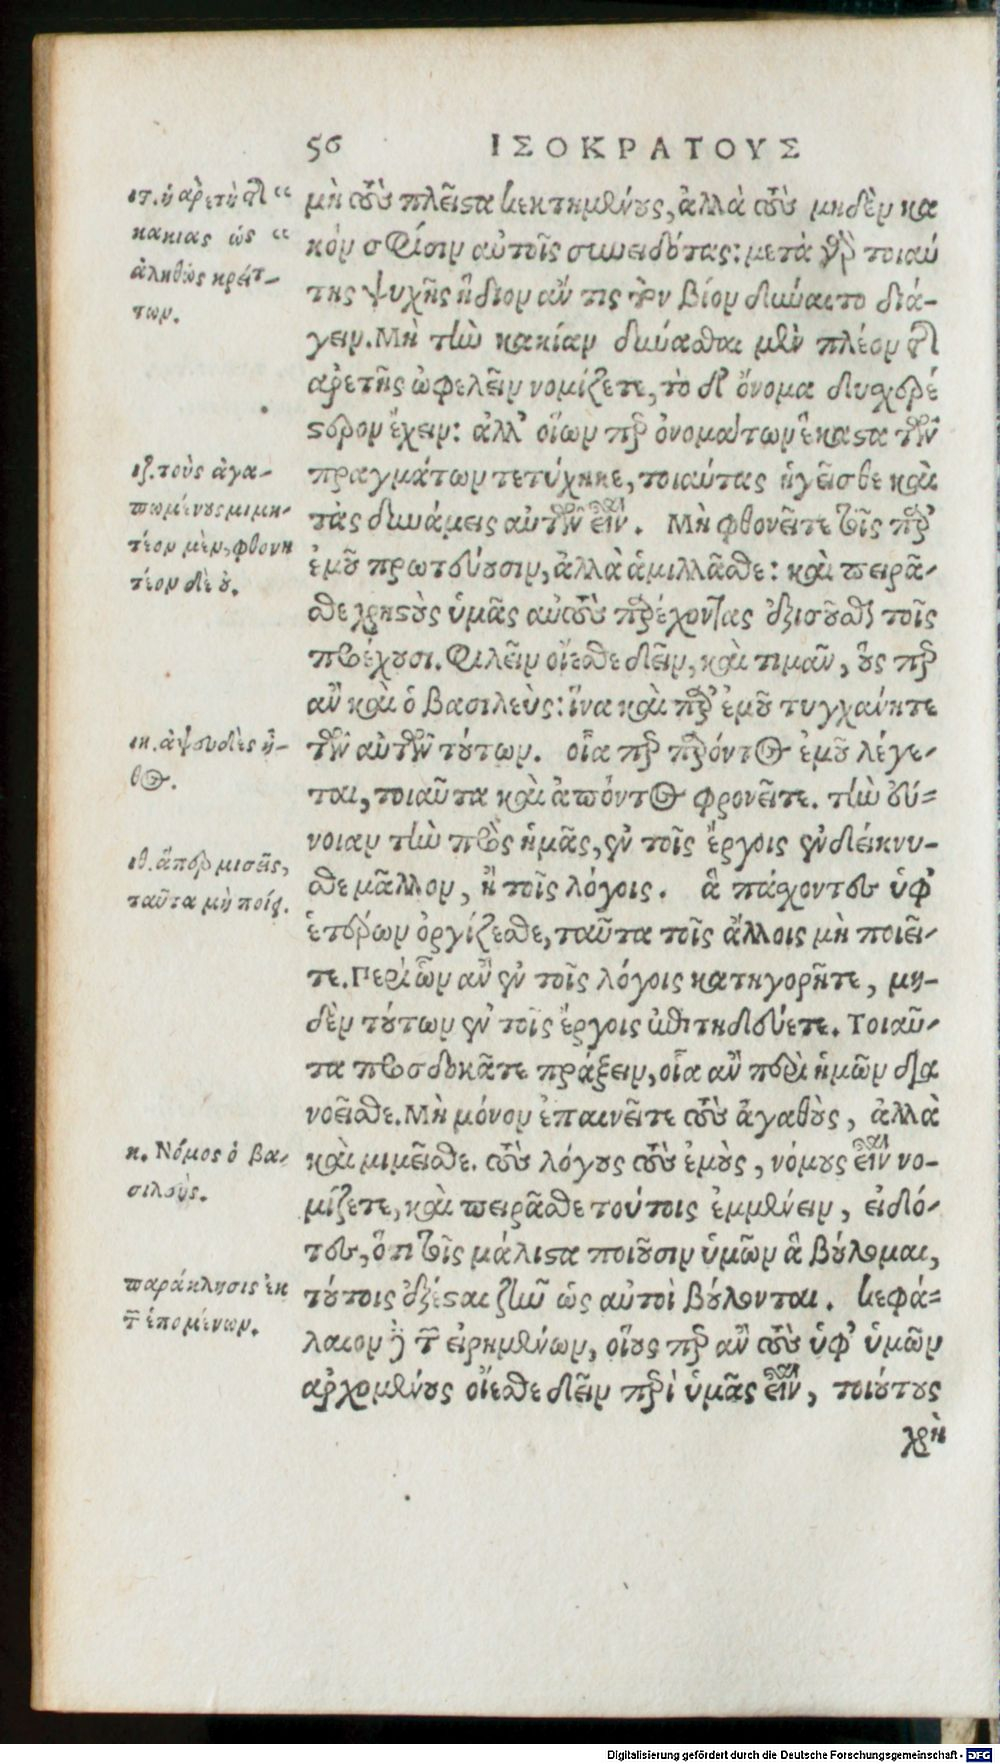 56 ΙΣΟΚΡΑΤΟΥΣ
ις. ἡ ἀρετὴ τῆς
κακίας ὡς
ἀληθῶς κρείτ-
των.
μὴ τοὺς πλεῖστα κεκτημένους, ἀλλὰ τοὺς μηδὲν κα
κὸν σφίσιν αὐτοῖς συνειδότας: μετὰ γὰρ τοιαύ
της ψυχῆς ἥδιον ἄν τις τὸν βίον δύναιτο διά-
γειν. Μὴ τὴν κακίαν δύνασθαι μὲν πλέον τῆς
ἀρετῆς ὠφελεῖν νομίζετε, τὸ δ' ὄνομα δυσχερέ
στερον ἔχειν: ἀλλ' οἵων περ ὀνομάτων ἕκαστα τῶν
ιζ. τοὺς ἀγα-
πωμένους μιμη-
τέον μὲν, φθονη
τέον δὲ οὐ.
πραγμάτων τετύχηκε, τοιαύτας ἡγεῖσθε καὶ
τὰς δυνάμεις αὐτῶν εἶναι. Μὴ φθονεῖτε τοῖς παρ'
ἐμοῦ πρωτεύουσιν, ἀλλὰ ἁμιλλᾶσθε: καὶ πειρᾶ-
σθε χρηστοὺς ὑμᾶς αὐτοὺς παρέχοντας ἐξισοῦσθαι τοῖς
προέχουσι. Φιλεῖν οἴεσθε δεῖν, καὶ τιμᾶν, οὓς περ
ἂν καὶ ὁ βασιλεὺς: ἵνα καὶ παρ' ἐμοῦ τυγχάνητε
ιη. ἀψευδὲς ἦ-
θος.
τῶν αὐτῶν τούτων. οἷα περ παρόντος ἐμοῦ λέγε-
ται, τοιαῦτα καὶ ἀπόντος φρονεῖτε. τὴν εὔ-
νοιαν τὴν πρὸς ἡμᾶς, ἐν τοῖς ἔργοις ἐνδείκνυ-
ιθ. ἅπερ μισεῖς,
ταῦτα μὴ ποίει.
σθε μᾶλλον, ἢ τοῖς λόγοις. ἃ πάσχοντες ὑφ'
ἑτέρων ὀργίζεσθε, ταῦτα τοῖς ἄλλοις μὴ ποιεῖ-
τε. Περὶ ὧν ἂν ἐν τοῖς λόγοις κατηγορῆτε, μη-
δὲν τούτων ἐν τοῖς ἔργοις ἐπιτηδεύετε. Τοιαῦ-
τα προσδοκᾶτε πράξειν, οἷα ἂν περὶ ἡμῶν δια
νοεῖσθε. Μὴ μόνον ἐπαινεῖτε τοὺς ἀγαθοὺς, ἀλλὰ
κ. Νόμος ὁ βα-
σιλεύς.
καὶ μιμεῖσθε. τοὺς λόγους τοὺς ἐμοὺς, νόμους εἶναι νο-
μίζετε, καὶ πειρᾶσθε τούτοις ἐμμένειν, εἰδό-
τες, ὅτι τοῖς μάλιστα ποιοῦσιν ὑμῶν ἃ βούλομαι,
παράκλησις ἐκ
τῶν ἑπομένων.
τούτοις ἐξέσται ζῆν ὡς αὐτοὶ βούλονται. κεφά-
λαιον δὲ τῶν εἰρημένων, οἵους περ ἂν τοὺς ὑφ' ὑμῶν
ἀρχομένους οἴεσθε δεῖν περὶ ὑμᾶς εἶναι, τοιούτους
χρὴ
Digitalisierung gefördert durch die Deutsche Forschungsgemeinschaft - DFG